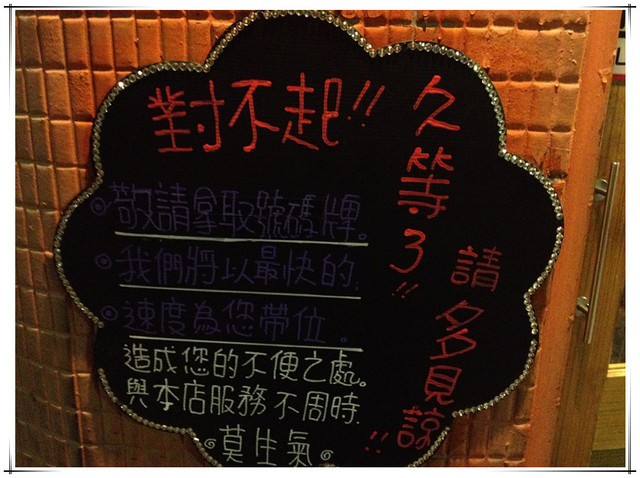 對不起!!
久等了!!
請多見諒!!
敬請拿取號碼牌。
我們將以最快的
速度為您帶位。
造成您的不便之處。
與本店服務不周時.
莫生氣